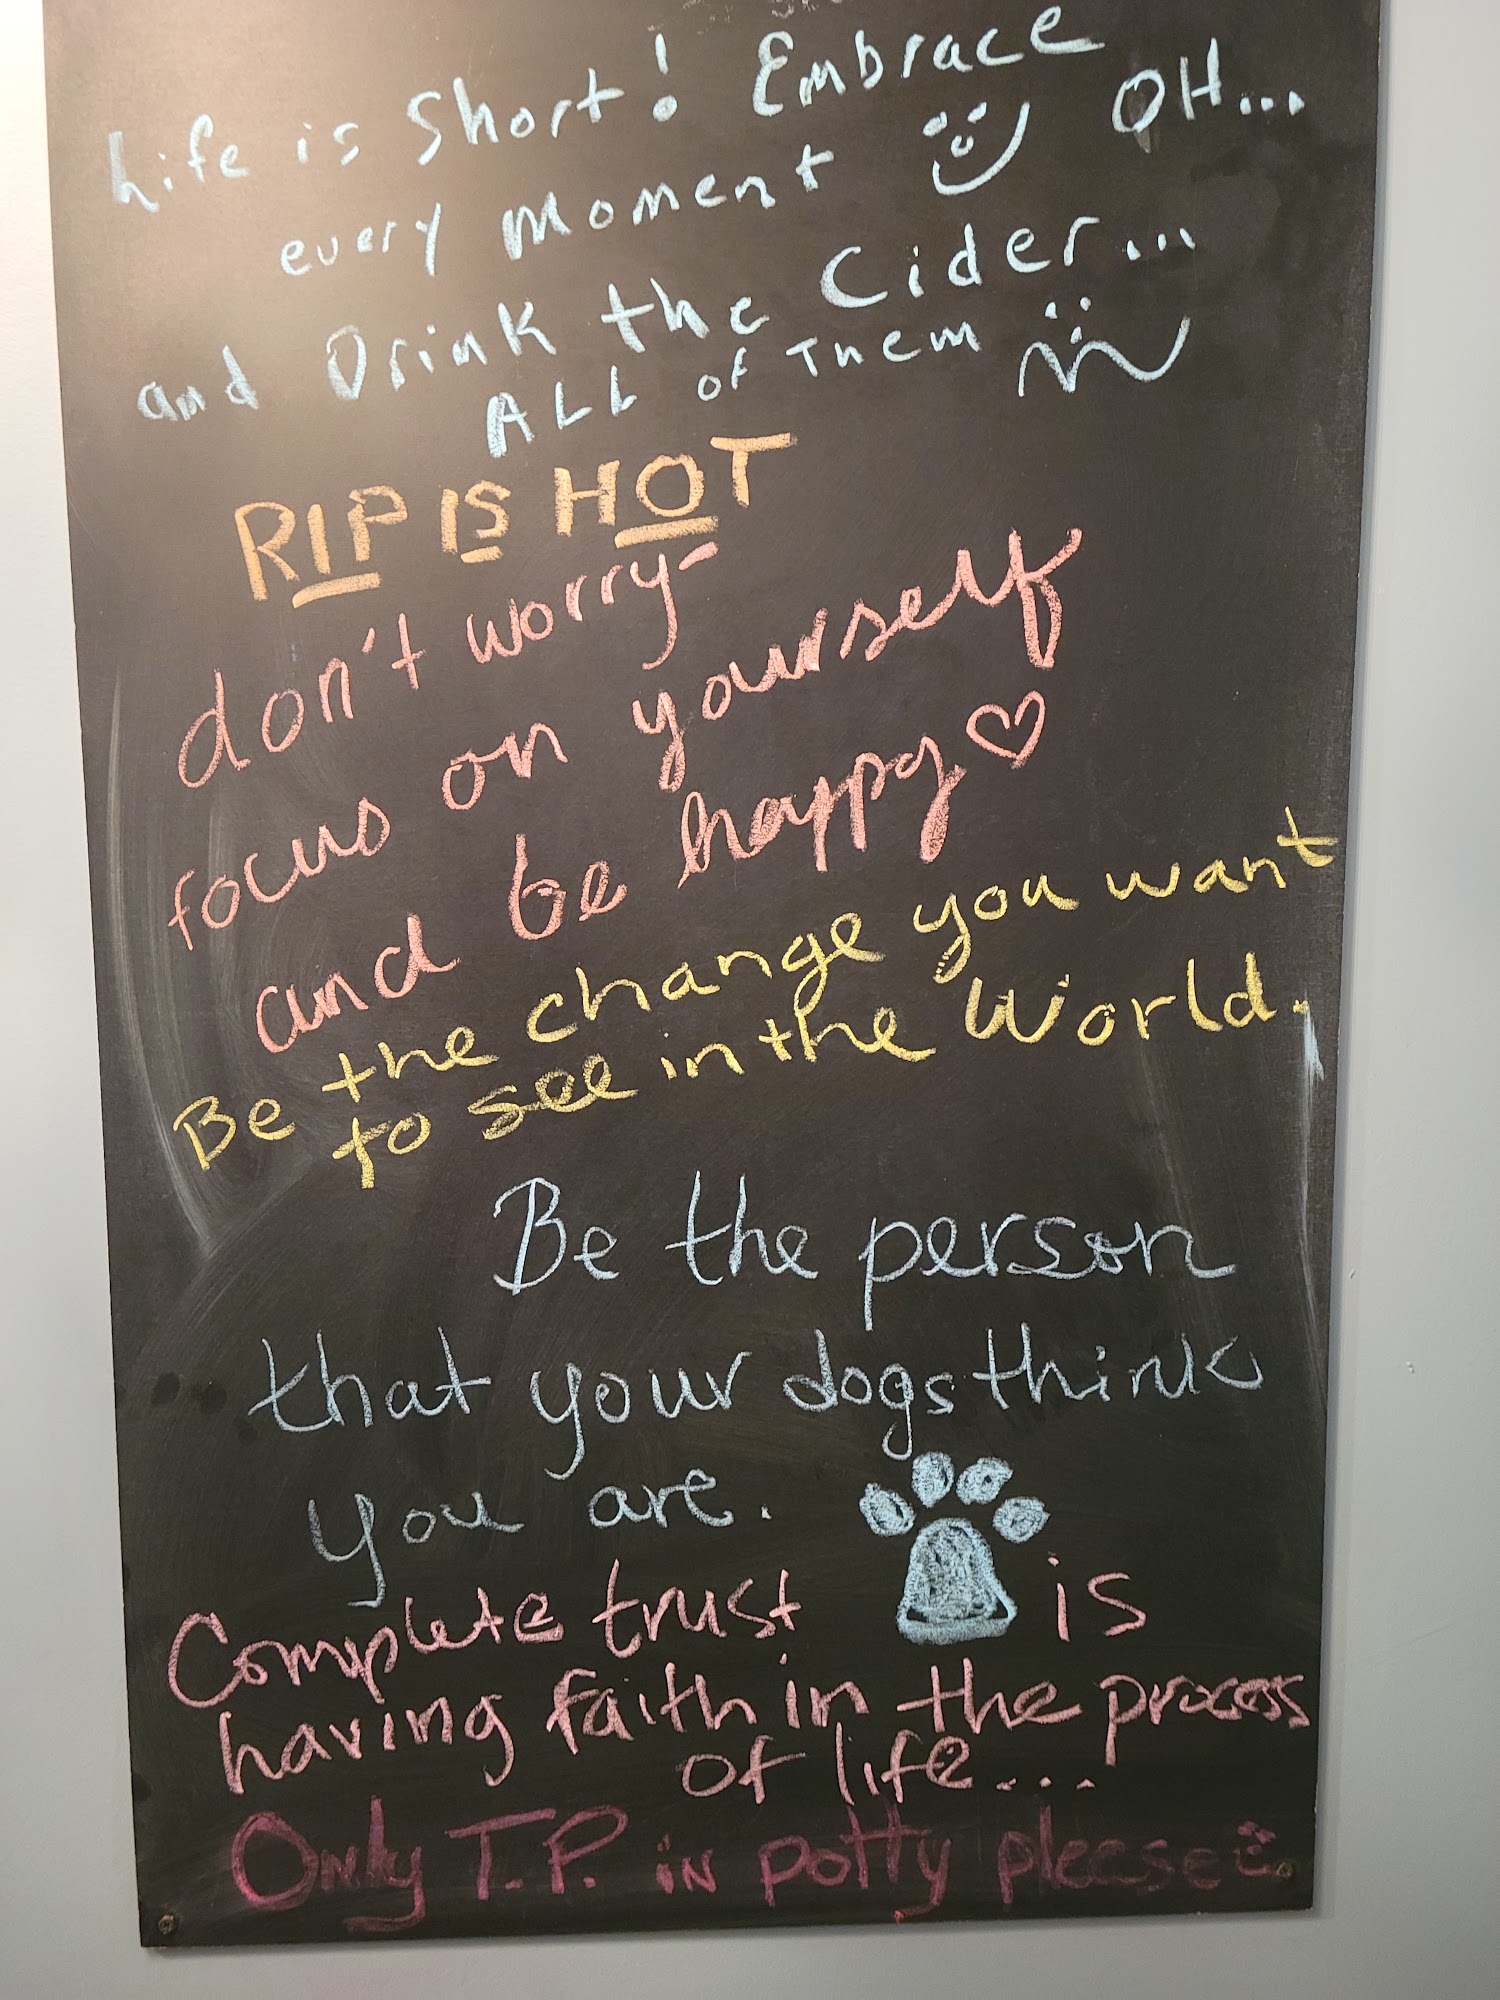 Life is Short! Embrace
every Moment OH...
and Drink the Cider...
ALL OF THEM
RIP IS HOT
don't worry-
focus on yourself
and be happy
Be the change you want
to see in the World.
Be the person
that your dogs think
you are.
Complete trust is
having faith in the process
of life...
Only T.P. in potty please